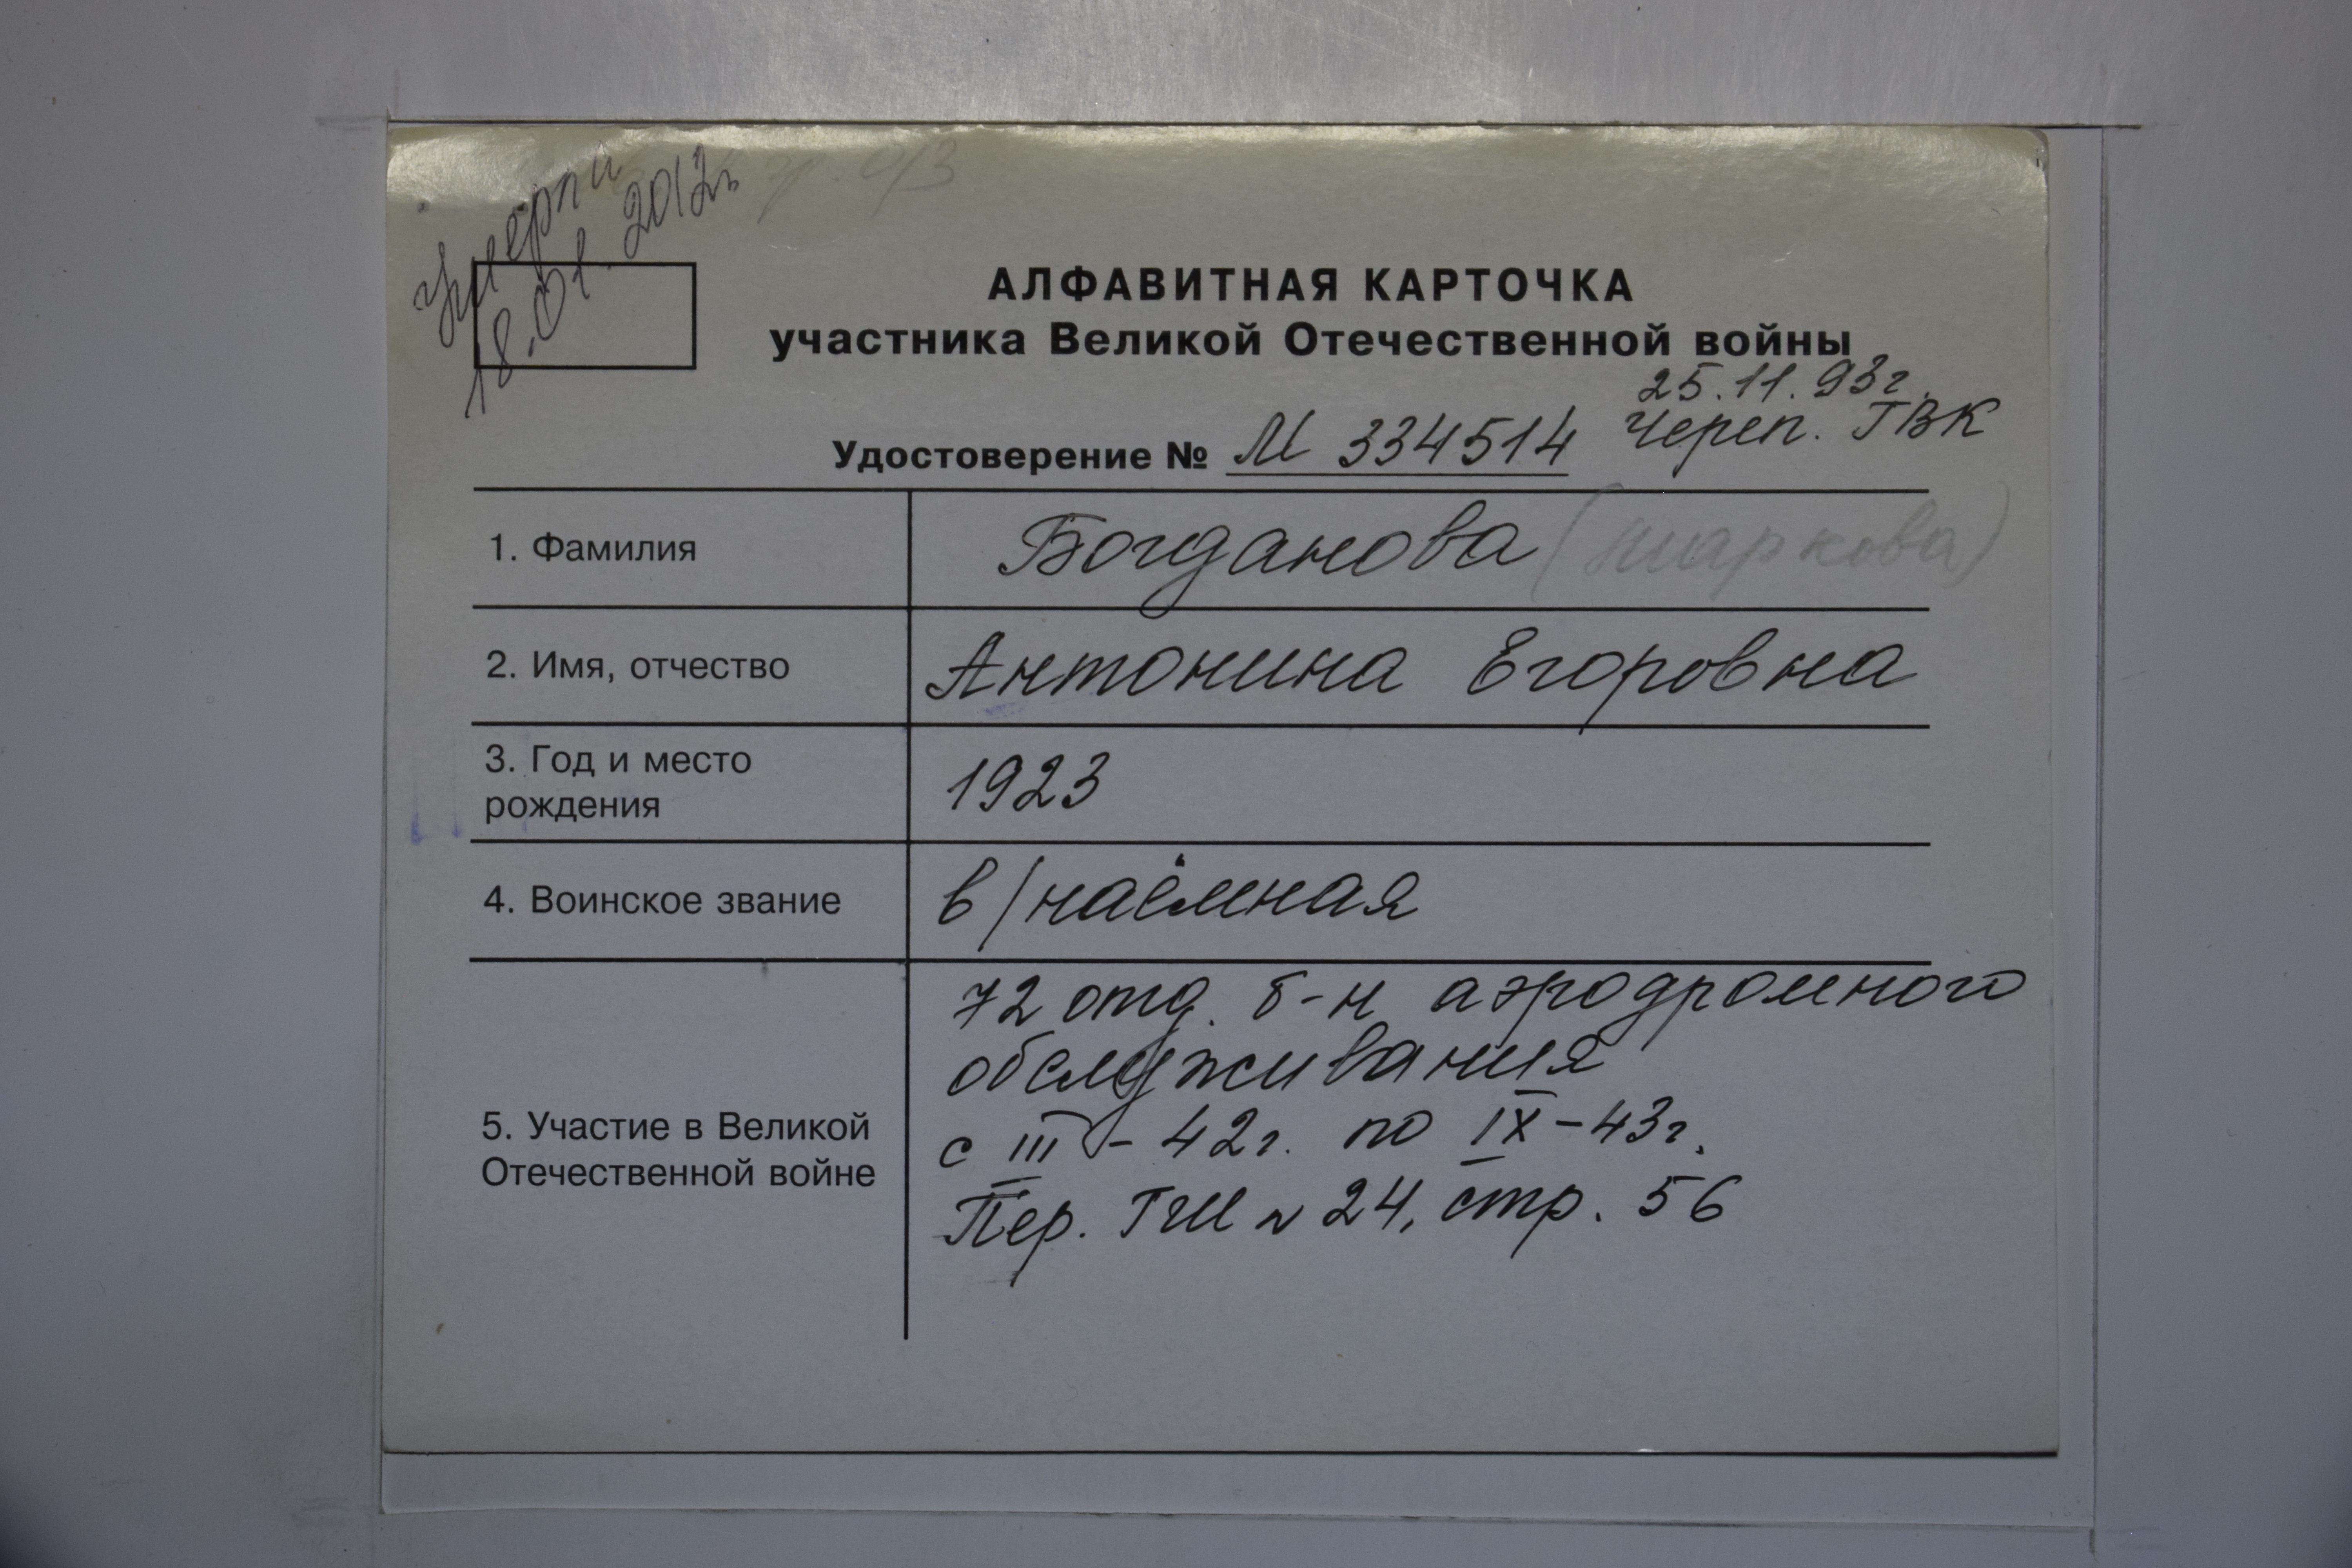 Умерла
18.01.2012г
АЛФАВИТНАЯ КАРТОЧКА
участника Великой Отечественной войны
25.11.93г.
Удостоверение № М 334514 Череп. ГВК
1. Фамилия Богданова (Шаркова)
2. Имя, отчество Антонина Егоровна
3. Год и место
рождения
1923
4. Воинское звание в/наёмная
5. Участие в Великой
Отечественной войне
72 отд. б-н аэродромного
обслуживания
с III - 42г. по IX - 43г.
Пер. ГШ № 24, стр. 56